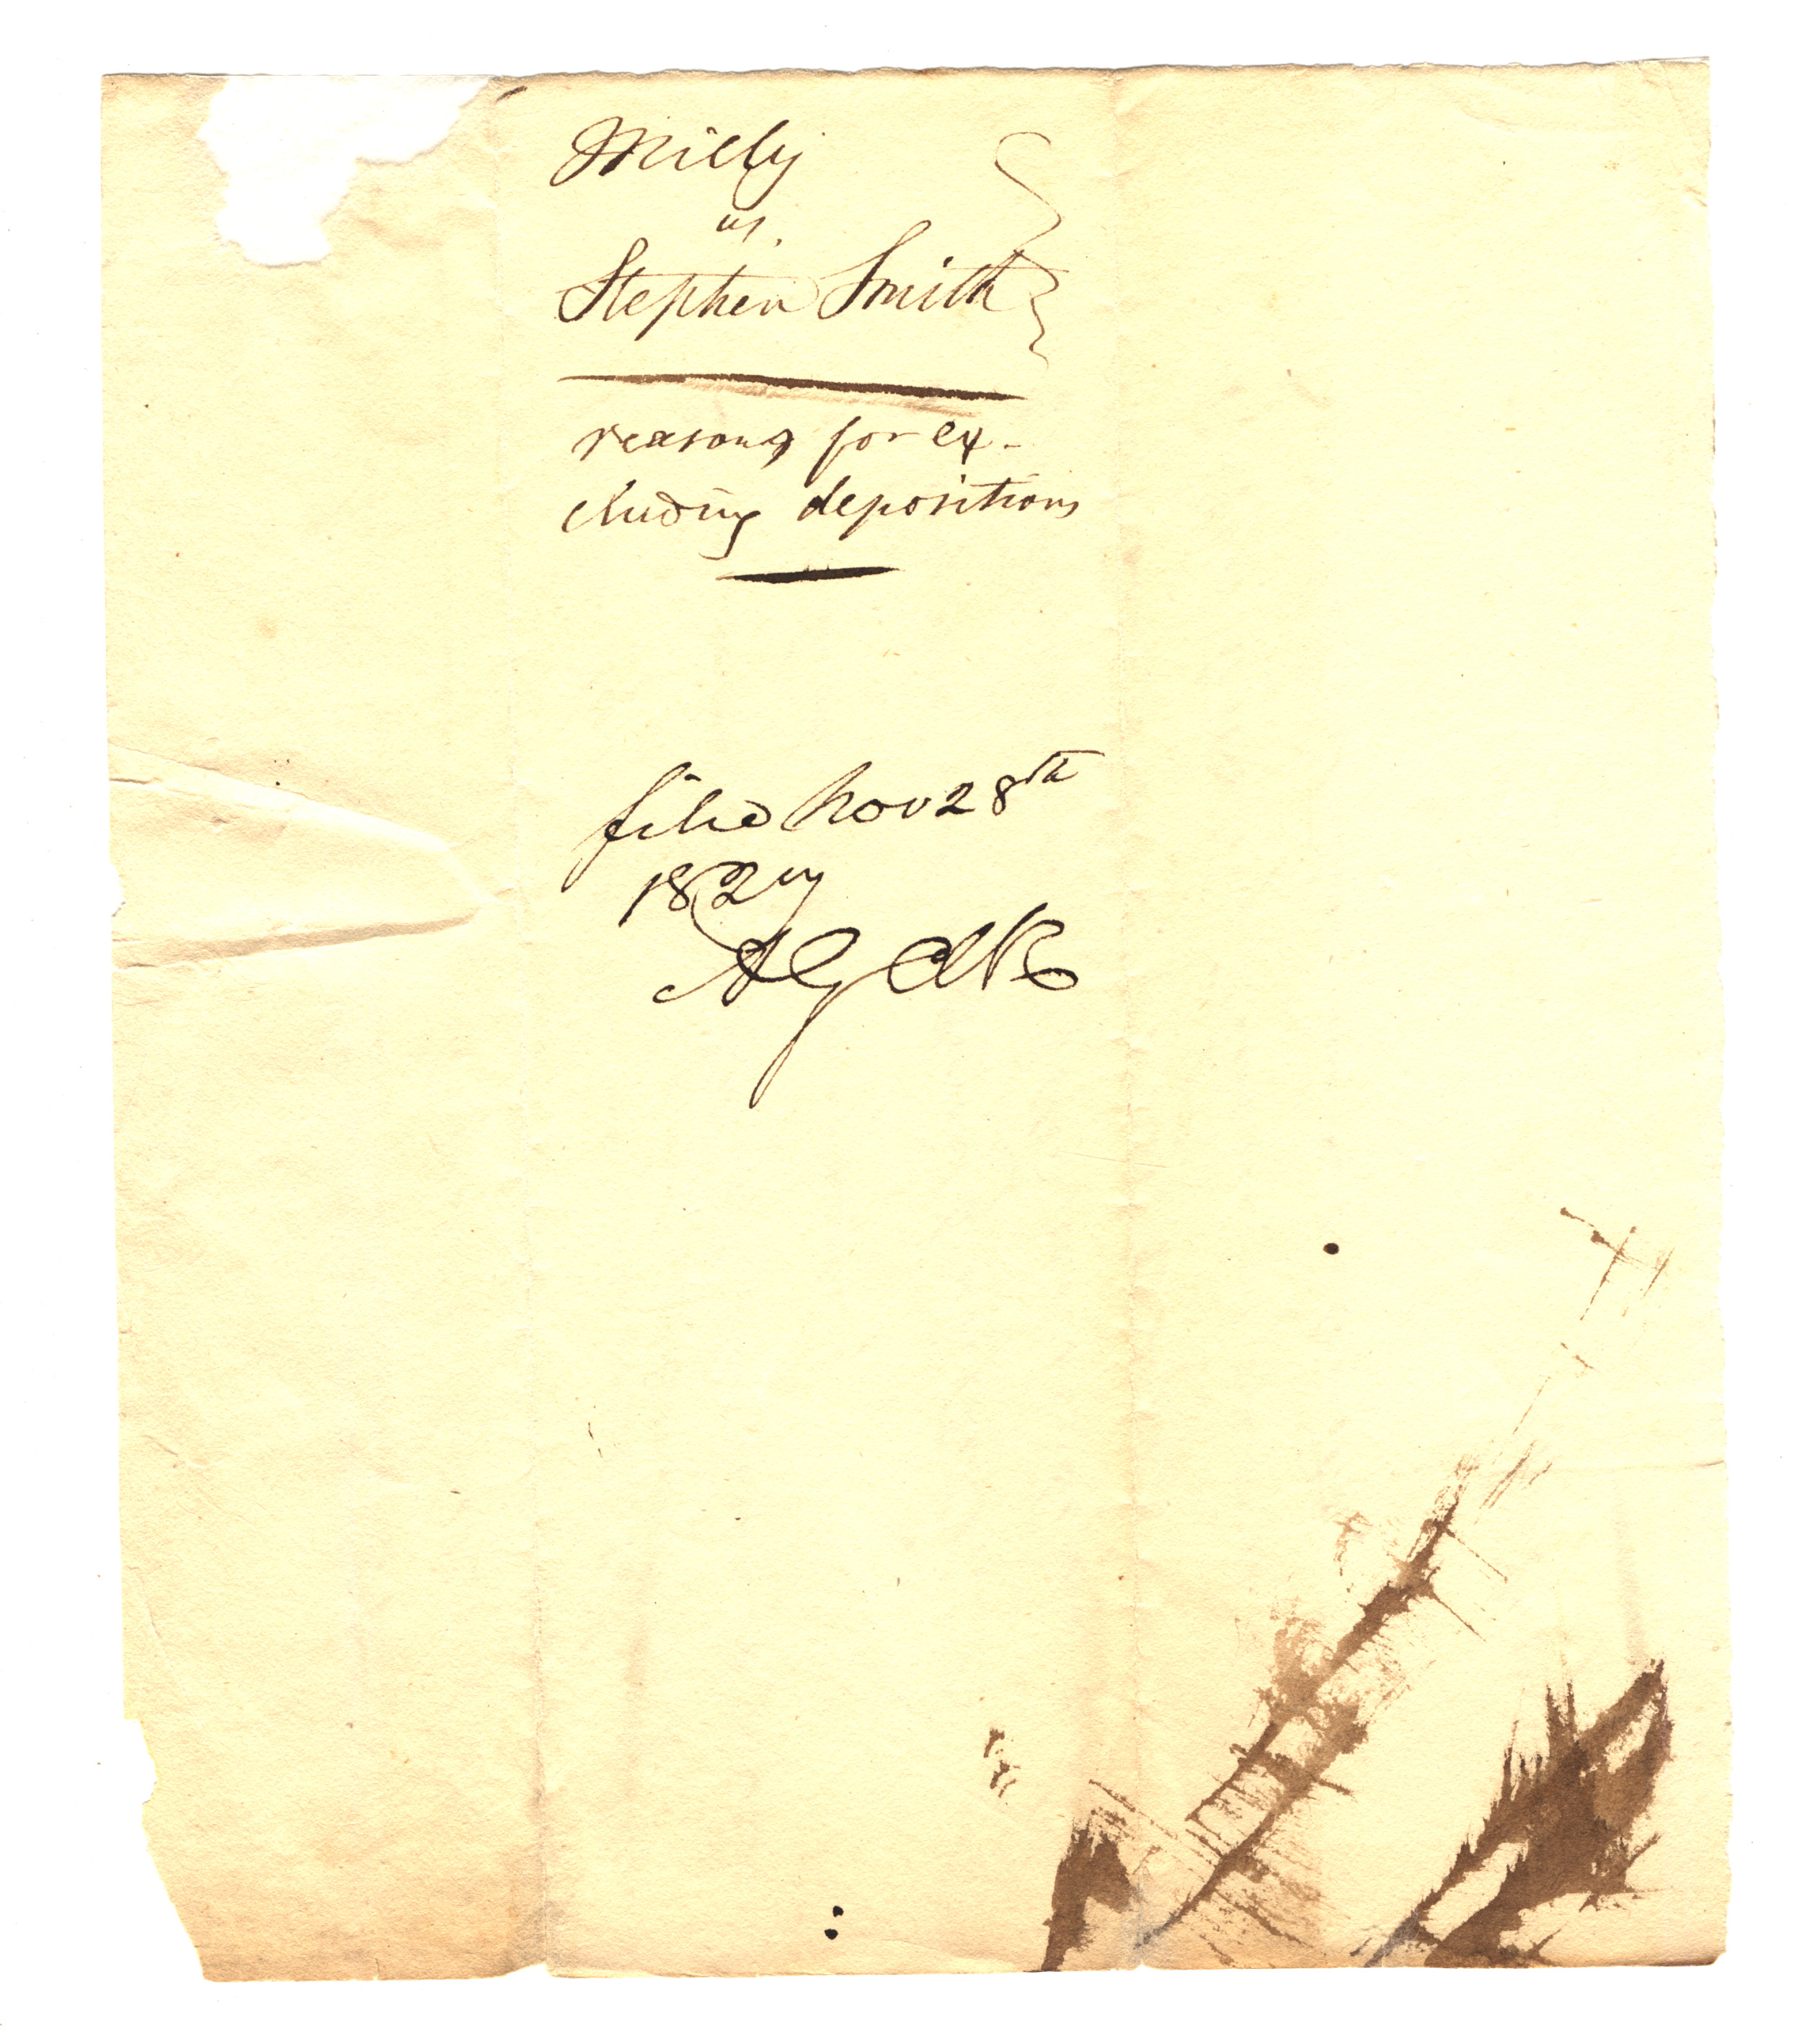 Milly
vs.
Stephen Smith
reasons for ex-
cluding depositions
filed Nov 28th
1827
AG Clk